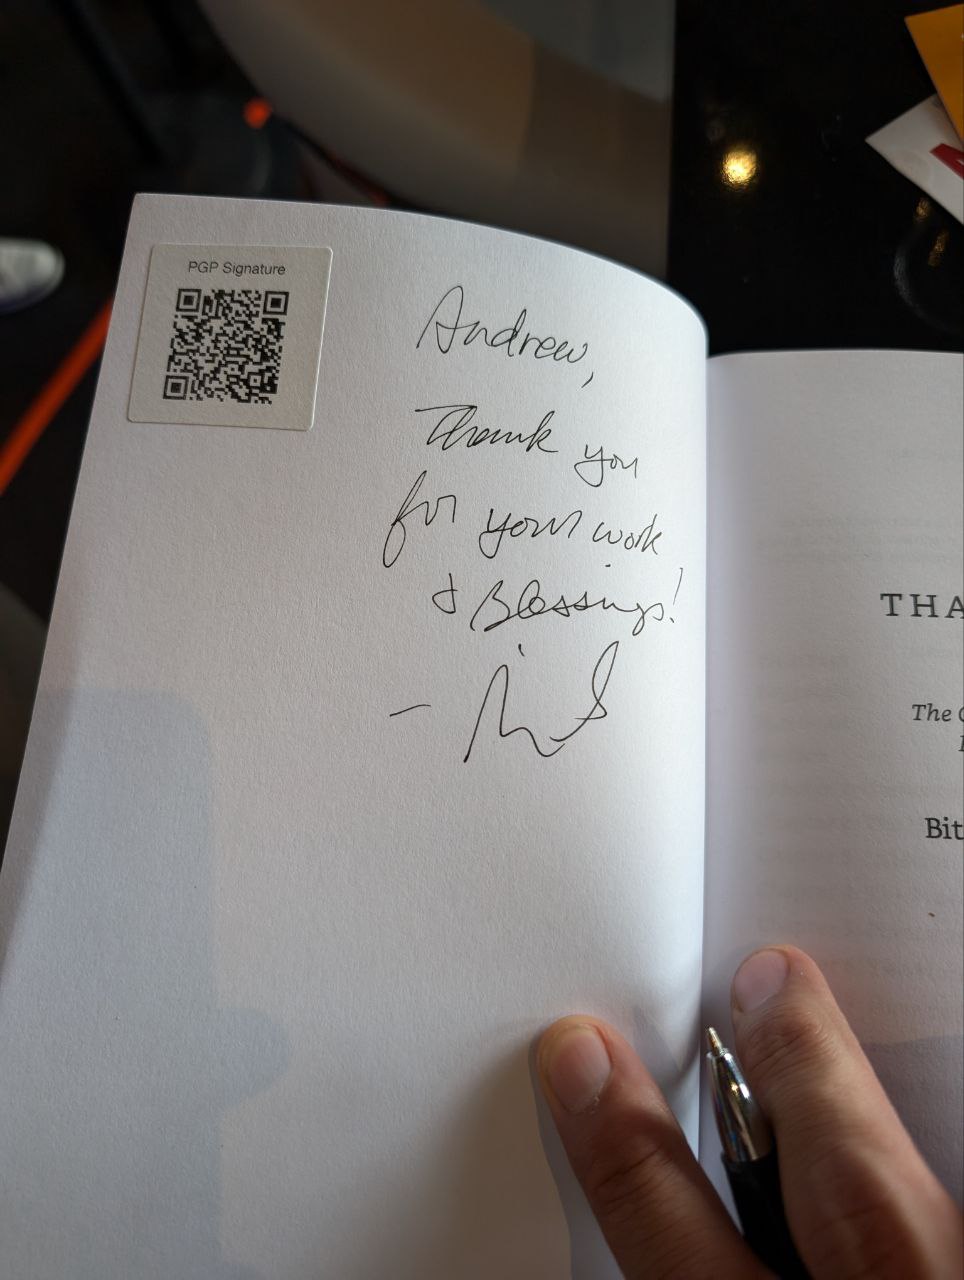 PGP Signature
Andrew,
Thank you
for your work
& Blessings!
THA
The
Bit